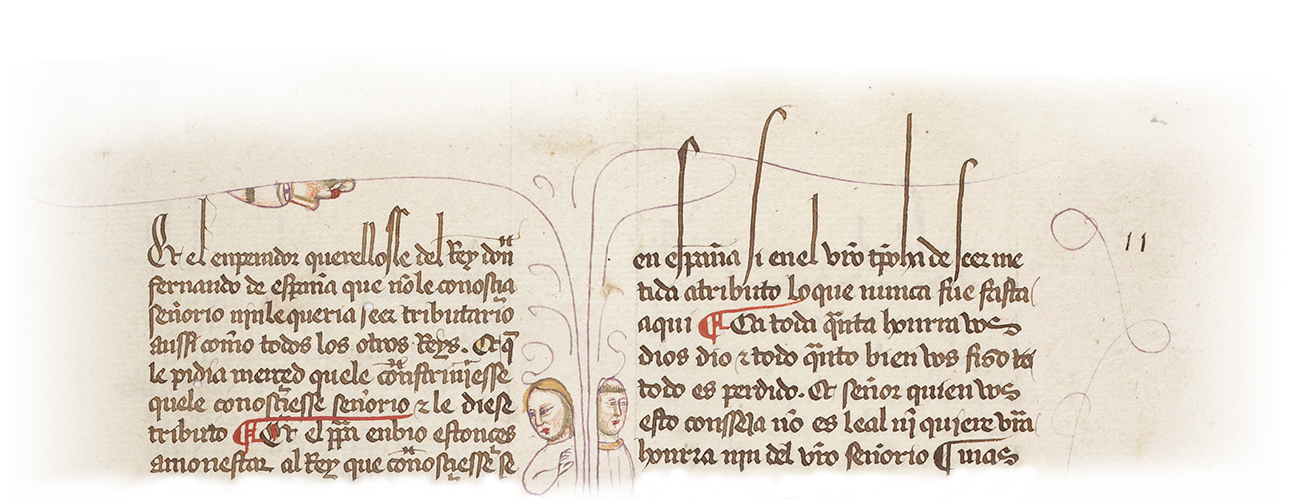 Et el enperador querellosse del Rey don
fernando de españa que nol le conosçia
señorio nin le queria seer tributario
assi como todos los otros Reys. Et q̃
le pidia merçed quele constriniesse
quele conosçiesse señorio ⁊ le diese
tributo ¶ Et el pp̃a enbio estonçes
amonestar al Rey que conosçiesse se
en españa si en el vr̃o tp̃o han de seer me
tida atributo lo que nunca fue fasta
aqui ¶ Ca toda q̃nta honrra vos
dios dio ⁊ todo q̃nto bien vos fiso
todo es perdido. Et señor quien vos
esto conseia no es leal nj̃ quiere vr̃a
honrra nin del vr̃o señorio ¶ mas
11